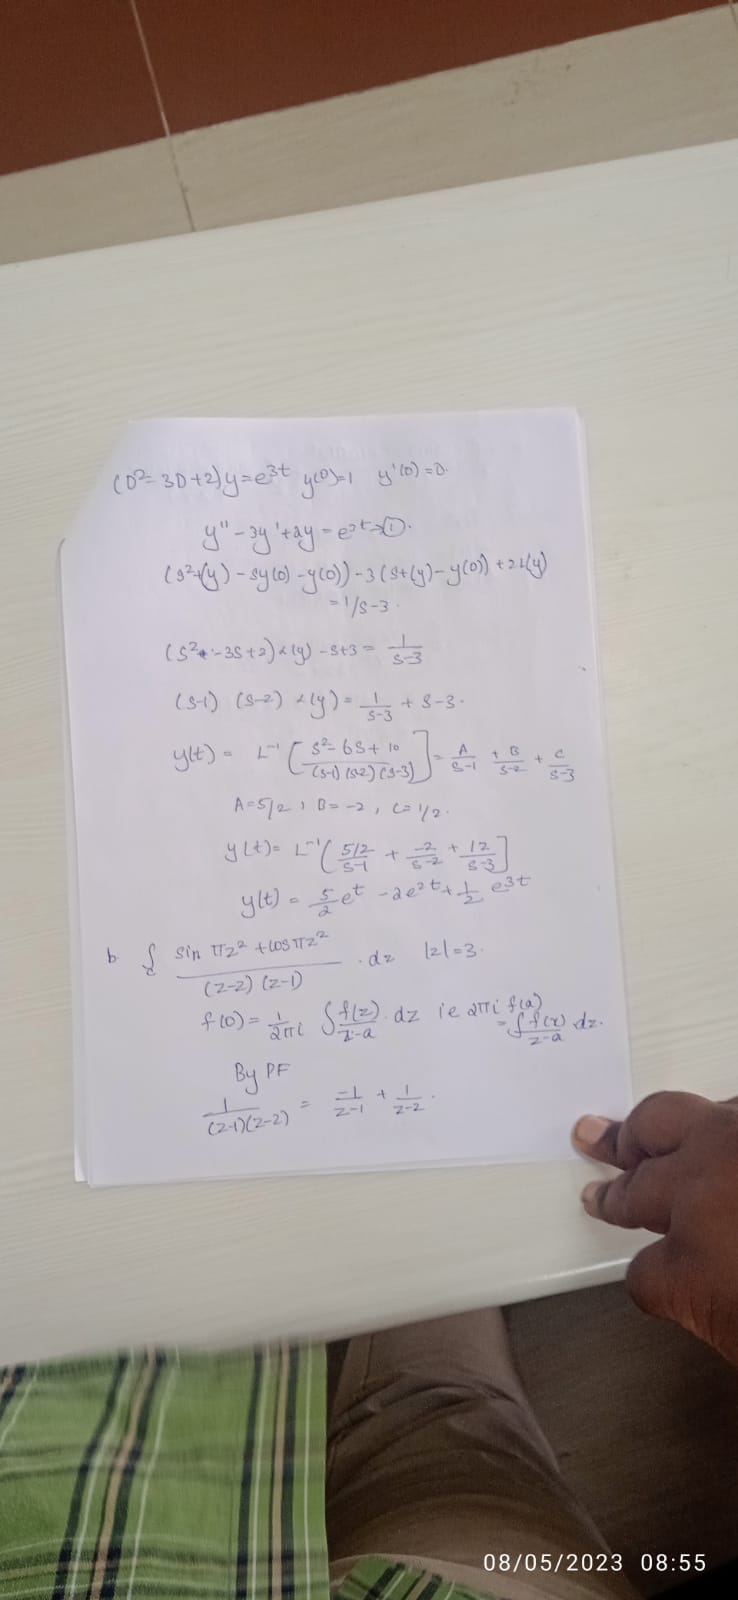 (D²-3D+2)y=e^3t y(0)=1 y'(0)=0.
y"-3y'+2y=e^3t→①.
(s²L(y)-sy(0)-y(0))-3(sL(y)-y(0))+2L(y)
=1/s-3.
(s²-3s+2)L(y)-s+3=1/s-3
(s-1) (s-2) L(y)=1/s-3+s-3.
y(t)= L^-1[s²-6s+10/(s-1)(s-2)(s-3)]=A/s-1+B/s-2+C/s-3
A=5/2, B=-2, C=1/2.
y(t)=L^-1(5/2/s-1+-2/s-2+12/s-3]
y(t)=5/2e^t-2e^2t+1/2 e^3t
b. ∫c sin πz²+cos πz²/(z-2)(z-1) .dz |z|=3.
f(0)=1/2πi ∫f(z)/z-a.dz ie 2πi f(a)
=∫f(x)/z-a dz.
By PF
1/(z-1)(z-2)=-1/z-1+1/z-2.
08/05/2023 08:55